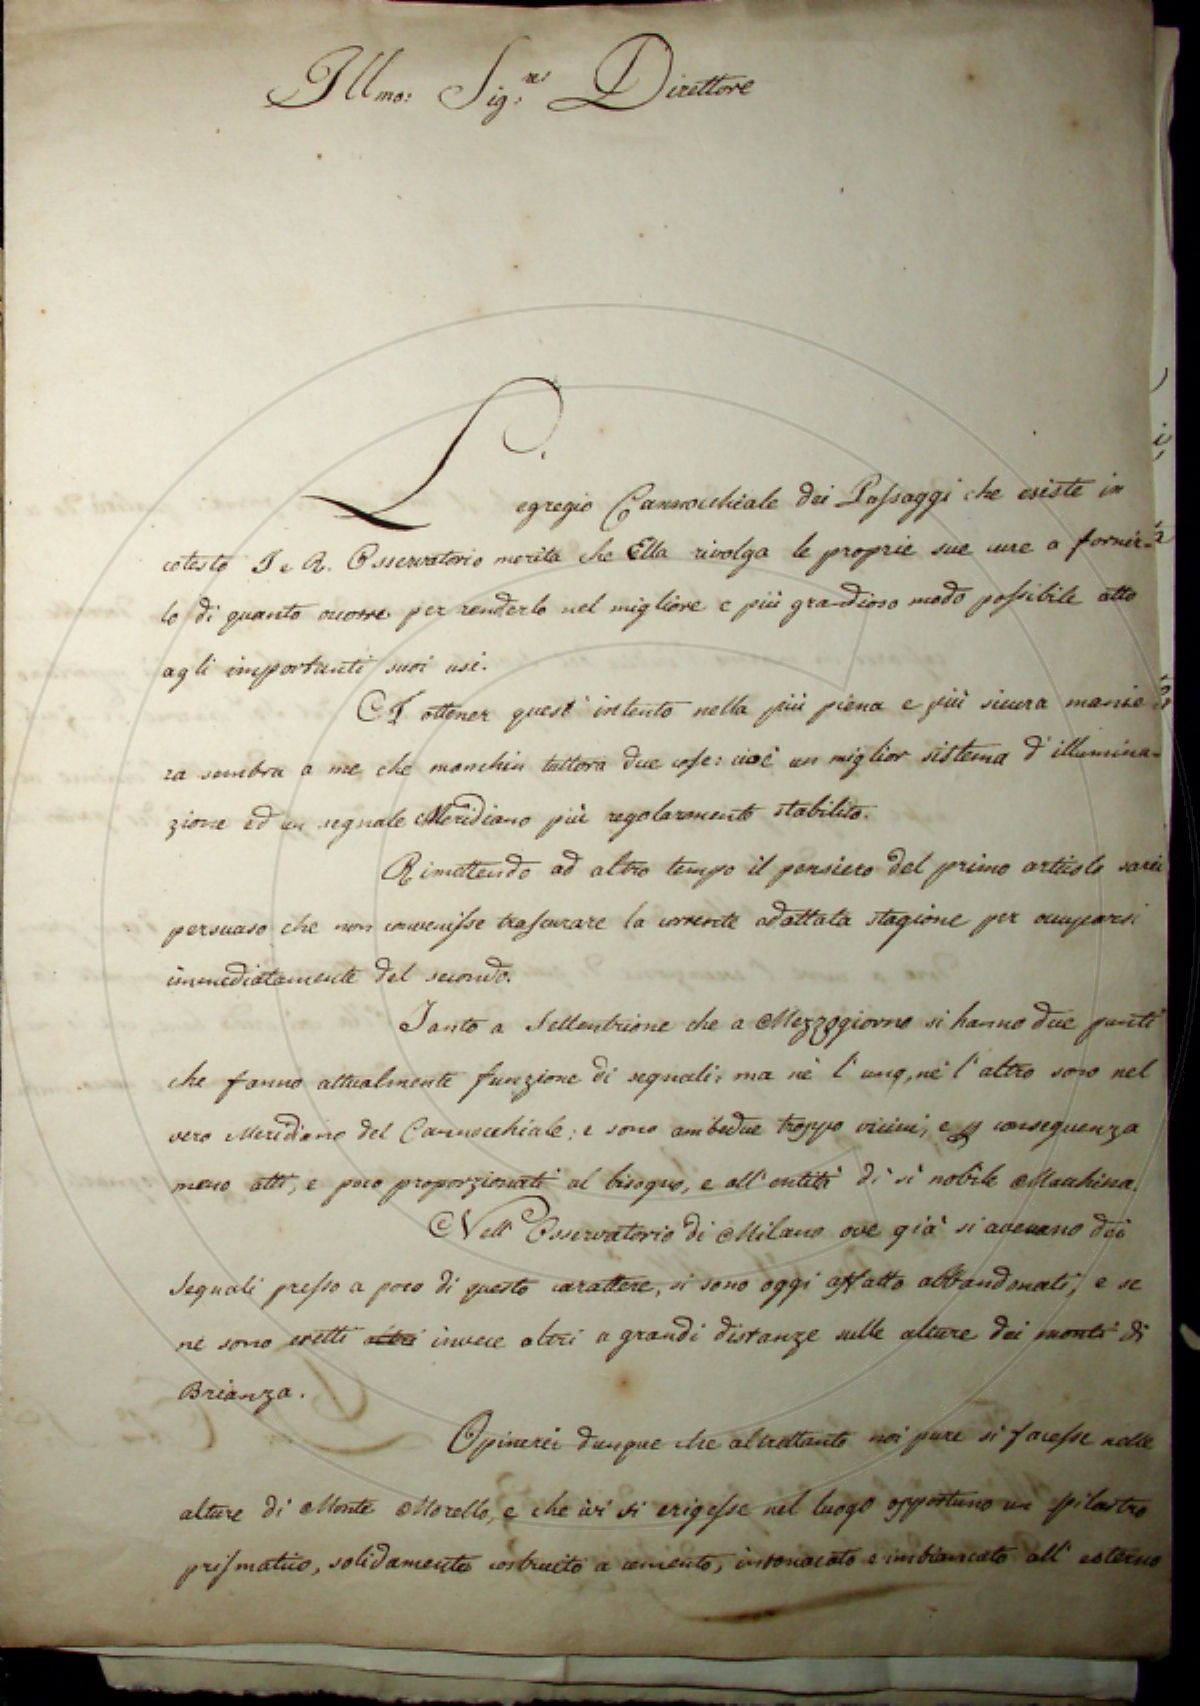 Illmo: Sig:re Direttore
L'egregio Cannocchiale dei Passaggi che esiste in
cotesto I e R. Osservatorio merita che Ella rivolga le proprie sue cure a fornir=
lo di quanto ocorre per renderlo nel migliore e più grandioso modo possibile atto
agli importanti suoi usi.
Ad ottener quest' intento nella più piena e più sicura manie=
ra sembra a me che manchin tuttora due cose: cioè un miglior sistema d' illumina=
zione ed un segnale Meridiano più regolarmente stabilito.
Rimettendo ad altro tempo il pensiero del primo articolo sarei
persuaso che non convenisse trascurare la corrente adattata stagione per occuparsi
immediatamente del secondo.
Tanto a Settentrione che a Mezzogiorno si hanno due punti
che fanno attualmente funzione di segnali; ma nè l' uno, nè l' altro sono nel
vero Meridiano del Cannocchiale; e sono ambedue troppo vicini, e p consequenza
meno atti, e poco proporzionati al bisogno, e all' entità di sì nobile Macchina.
Nell' Osservatorio di Milano ove già si avevano dei
segnali presso a poco di questo carattere, si sono oggi affatto abbandonati, e se
ne sono eretti altri invece altri a grandi distanze sulle alture dei monti di
Brianza.
Opinerei dunque che altrettanto noi pure si facesse nelle
alture di Monte Morello, e che ivi si erigesse nel luogo opportuno un pilastro
prismatico, solidamente costruito a cemento, intonacato e imbiancato all' esterno